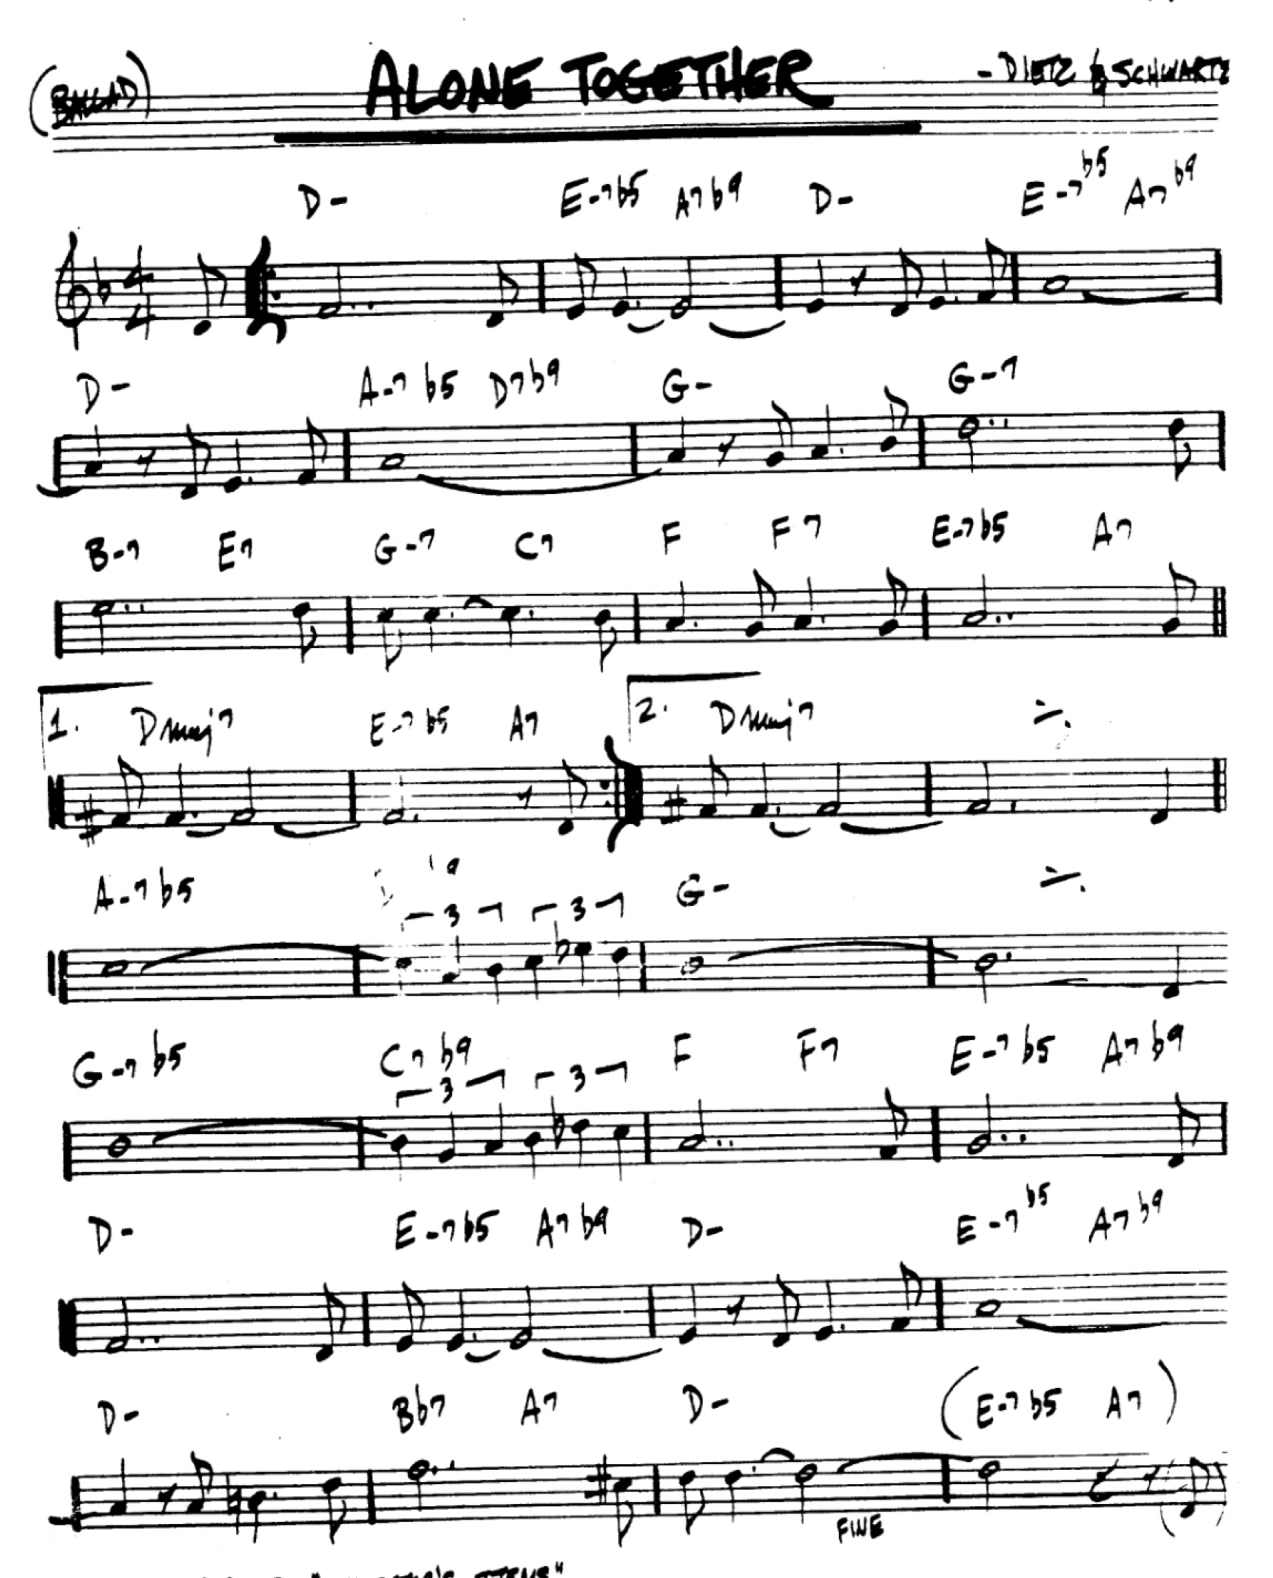 (BALLAD) ALONE TOGETHER - DIETZ & SCHWARTZ
D- E-7b5 A7b9 D- E-7b5 A7b9
4
4
D- A-7b5 D7b9 G- G-7
B-7 E7 G-7 C7 F F7 E-7b5 A7
1. Dmaj7 E-7b5 A7 2. Dmaj7
A-7b5 G-
3 3
G-7b5 C7b9 F F7 E-7b5 A7b9
3 3
D- E-7b5 A7b9 D- E-7b5 A7b9
D- Bb7 A7 D- (E-7b5 A7)
FINE